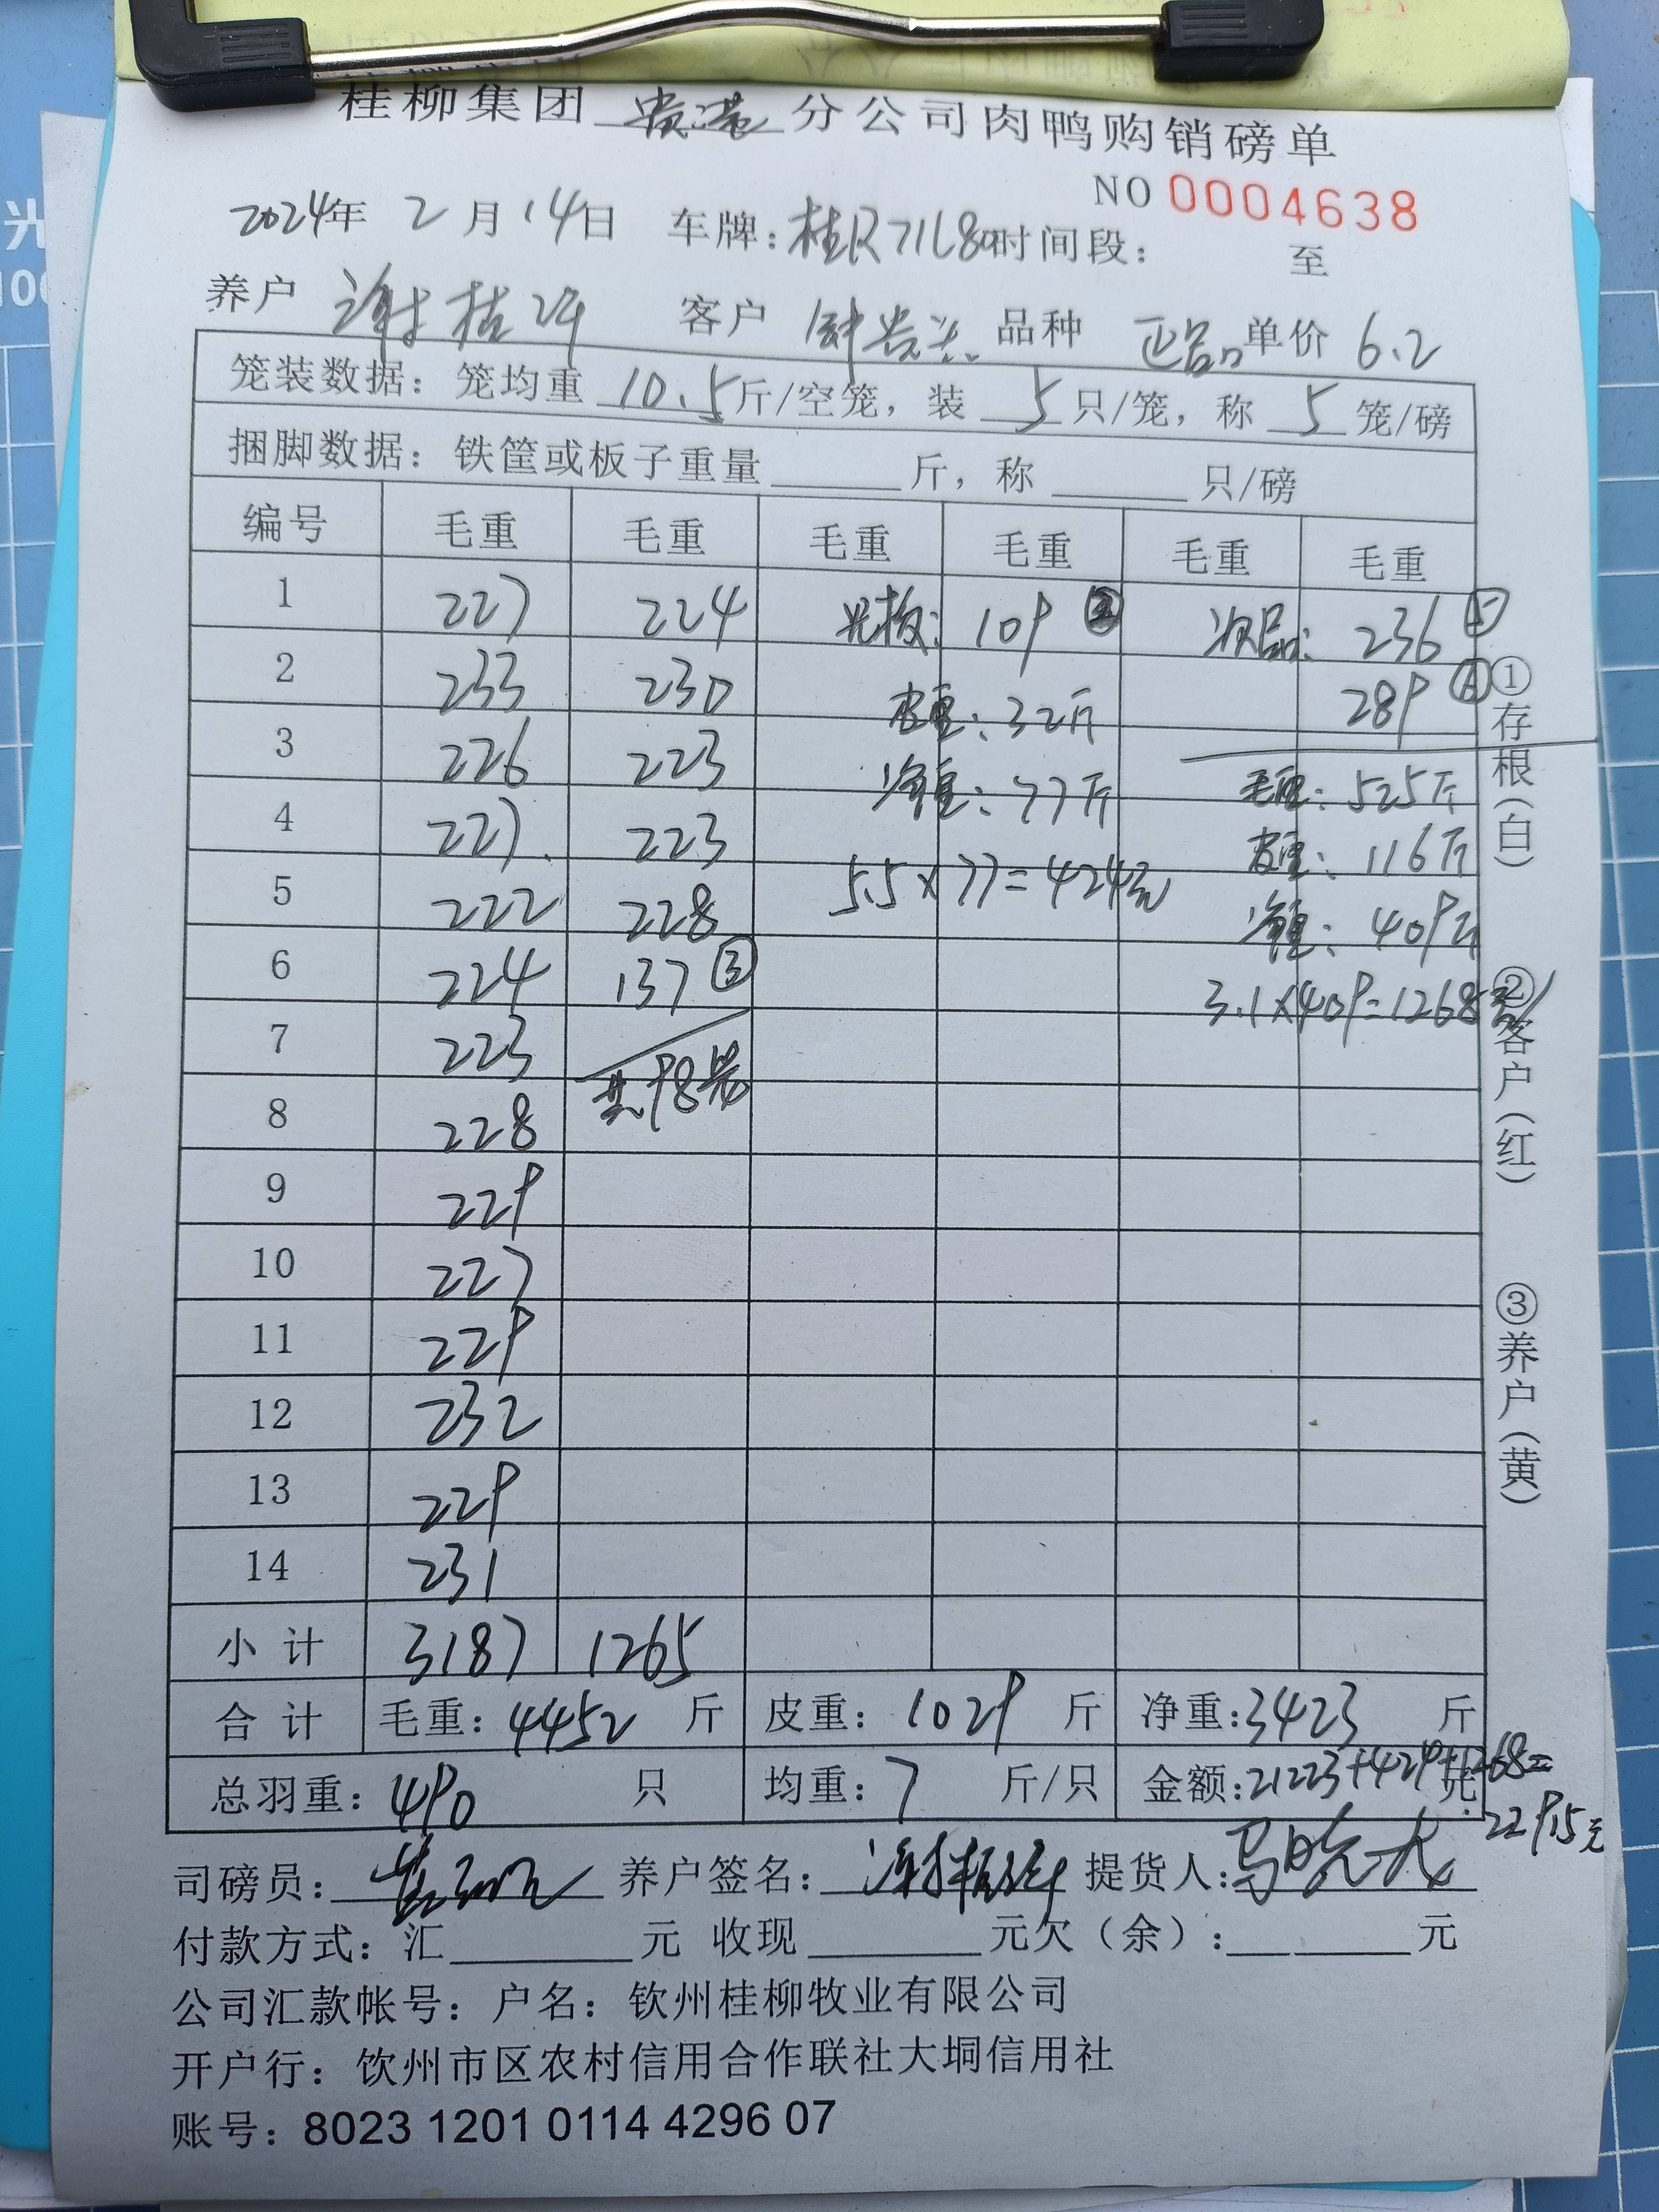 桂柳集团 贵港 分公司肉鸭购销磅单
NO 0004638
2024年 2月14日 车牌:桂R71L80 时间段: 至
养户 谢 客户 钟贵 品种 正品 单价 6.2
笼装数据：笼均重 10.5 斤/空笼，装 5 只/笼，称 5 笼/磅
捆脚数据：铁筐或板子重量 斤，称 只/磅
编号 毛重 毛重 毛重 毛重 毛重 毛重
1 227 224 光板: 109 次品: 236 ⑤
2 233 230 皮重: 32斤 289
3 226 223 净重: 77斤 毛重: 525斤
4 227. 223 皮重: 116斤
5 222 228 5.5×77=424元 净重: 409斤
6 224 137 ③ 3.1×409=1268元
7 223 共98笼
8 228
9 229
10 227
11 229
12 232
13 229
14 231
小计 3187 1265
合计 毛重: 4452 斤 皮重: 1029 斤 净重: 3423 斤
总羽重: 490 只 均重: 7 斤/只 金额: 21223+424+1268= 元
22915元
司磅员: 养户签名: 提货人: 马
付款方式：汇 元 收现 元欠（余）: 元
公司汇款帐号：户名：钦州桂柳牧业有限公司
开户行：饮州市区农村信用合作联社大垌信用社
账号：8023 1201 0114 4296 07
①存根（白）
②客户（红）
③养户（黄）